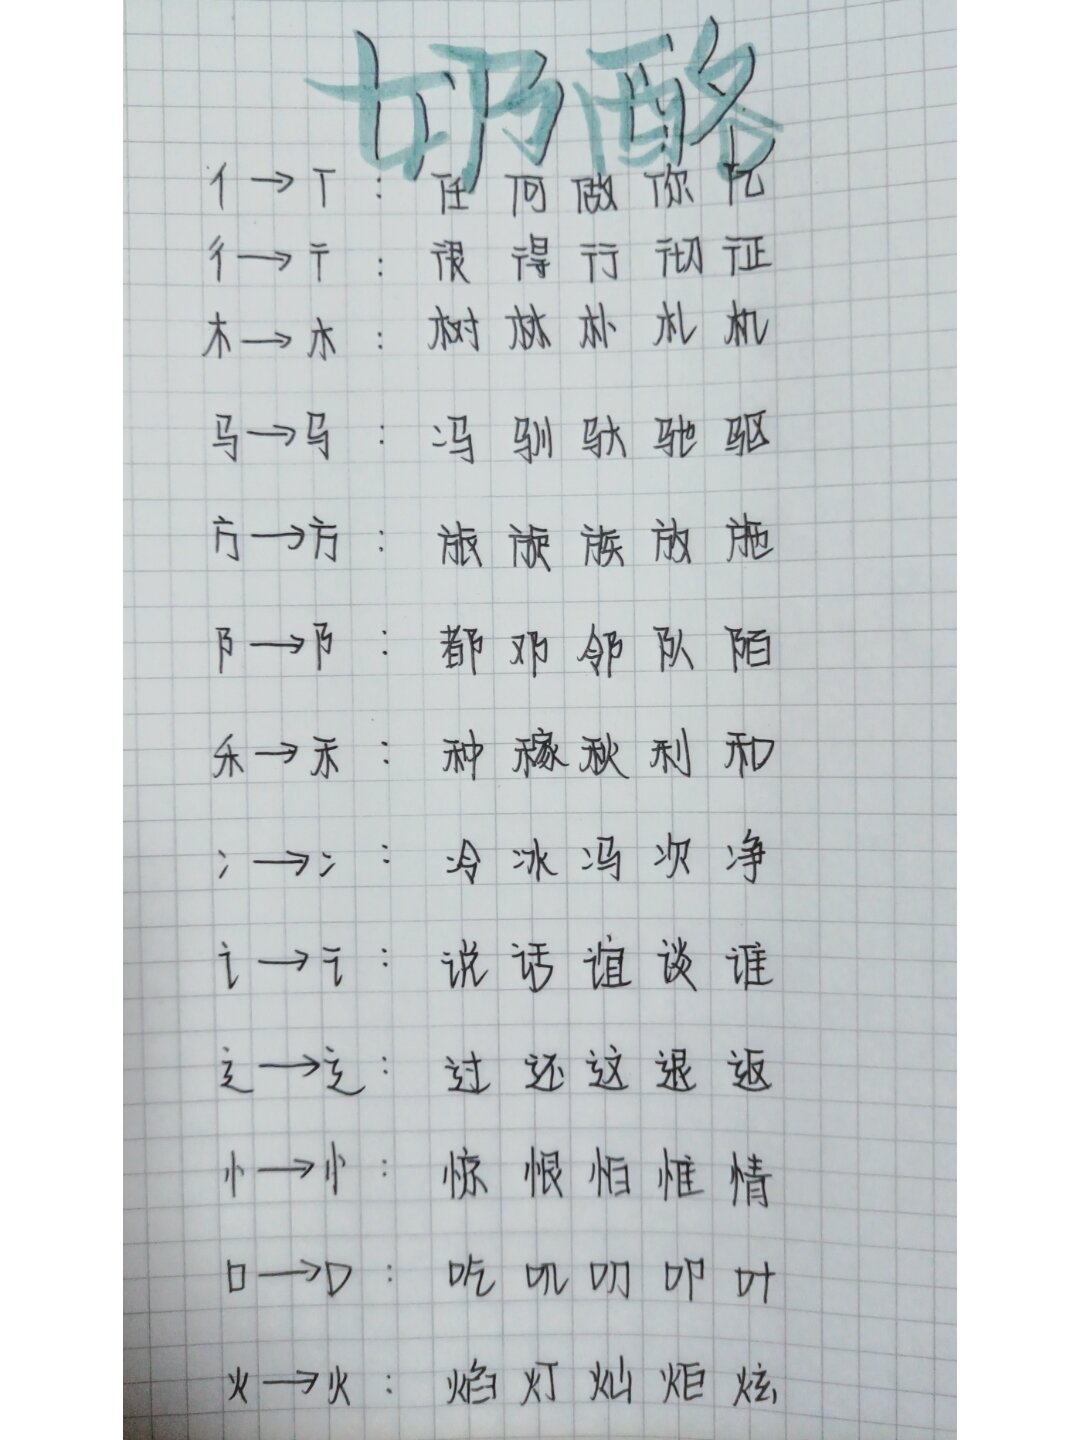 奶酪
亻→亻：任 何 做 你 亿
彳→彳：很 得 行 彻 征
木→木：树 林 朴 札 机
马→马：冯 驯 驮 驰 驱
方→方：旅 旋 族 放 施
阝→阝：都 邓 邻 队 陌
禾→禾：种 稼 秋 利 和
冫→冫：冷 冰 冯 次 净
讠→讠：说 话 谊 谈 谁
辶→辶：过 还 这 退 返
忄→忄：惊 恨 怕 惟 情
口→口：吃 叽 叨 叩 叶
火→火：焰 灯 灿 炬 炫